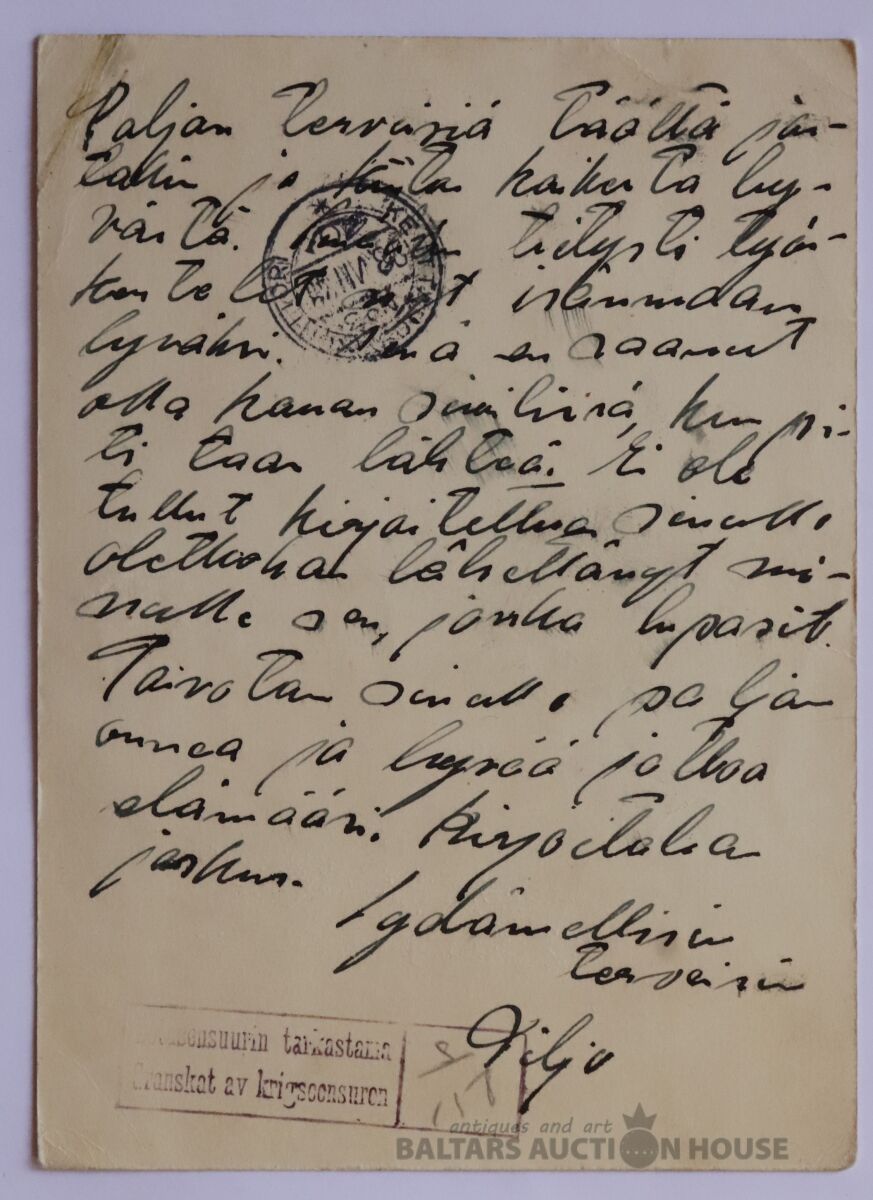 Paljon terveisiä täältä jos-
takin ja kiitos kaikesta hy-
västä. tietysti työs-
kentelet nyt isänmaan
hyväksi. Minä en saanut
olla kauan siviilissä, kun pi-
ti taas lähteä. Ei ole
tullut kirjoitettua sinulle
oletkohan lähettänyt mi-
nulle sen, jonka lupasit.
Toivotan sinulle paljon
onnea ja hyvää jatkoa
elämääsi. Kirjoitahan
joskus.
Sydämellisin
terveisin
Viljo
KENTTÄ
tarkastama
Granskat av krigscensuren
antiques and art
BALTARS AUCTION HOUSE